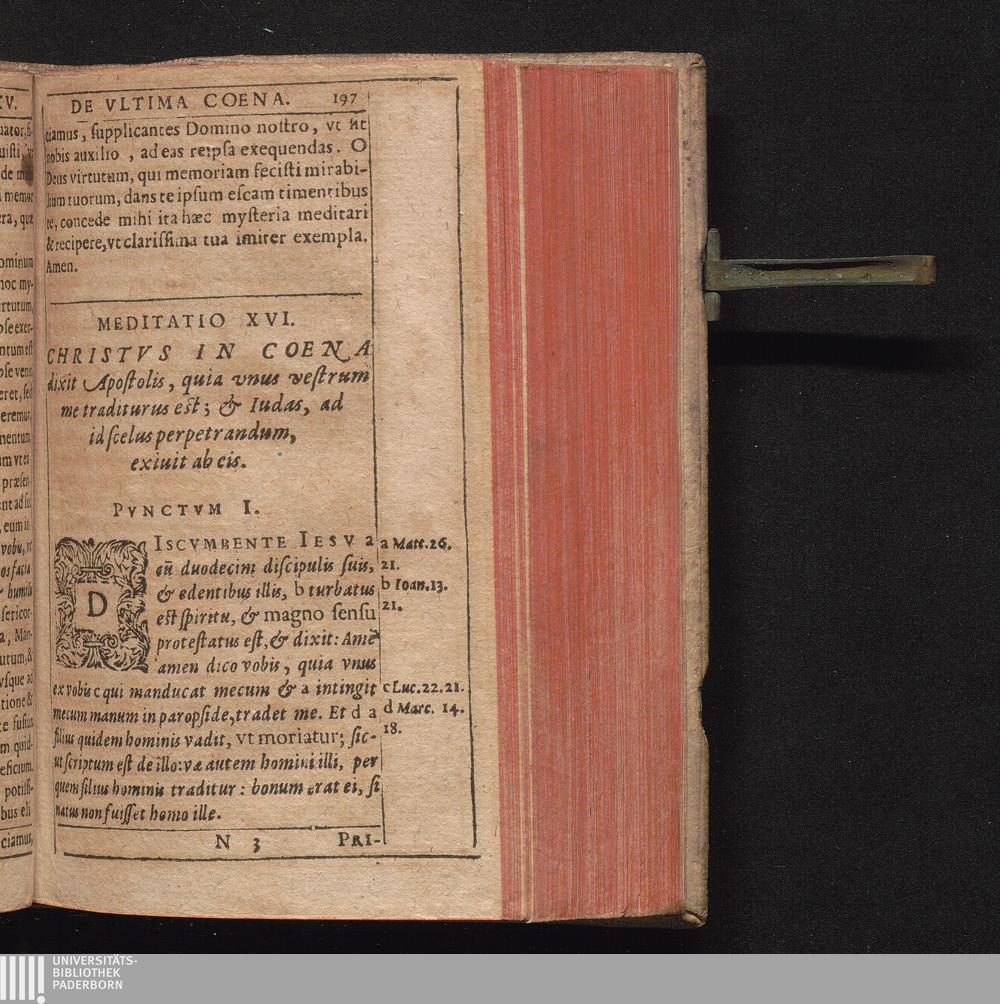 DE VLTIMA COENA. 197
ciamus, ſupplicantes Domino noſtro, vt ſit
nobis auxilio, ad eas reipſa exequendas. O
Deus virtutum, qui memoriam feciſti mirabi-
lium tuorum, dans te ipſum eſcam timentibus
te, concede mihi ita hæc myſteria meditari
& recipere, vt clariſſima tua imiter exempla.
Amen.
MEDITATIO XVI.
CHRISTVS IN COENA
dixit Apoſtolis, quia vnus veſtrum
me traditurus eſt; & Iudas, ad
id ſcelus perpetrandum,
exiuit ab eis.
PVNCTVM I.
DISCVMBENTE IESV a
cū duodecim diſcipulis ſuis,
& edentibus illis, b turbatus
eſt ſpiritu, & magno ſenſu
proteſtatus eſt, & dixit: Amē
amen dico vobis, quia vnus
ex vobis c qui manducat mecum & a intingit
mecum manum in paropſide, tradet me. Et d a
filius quidem hominis vadit, vt moriatur; ſic-
ut ſcriptum eſt de illo: væ autem homini illi, per
quem filius hominis traditur: bonum erat ei, ſi
natus non fuiſſet homo ille.
a Matt. 26.
21.
b Ioan. 13.
21.
c Luc. 22. 21.
d Marc. 14.
18.
N 3 PRI-
XV.
ominum
hoc my-
ciamus,
UNIVERSITÄTS-
BIBLIOTHEK
PADERBORN